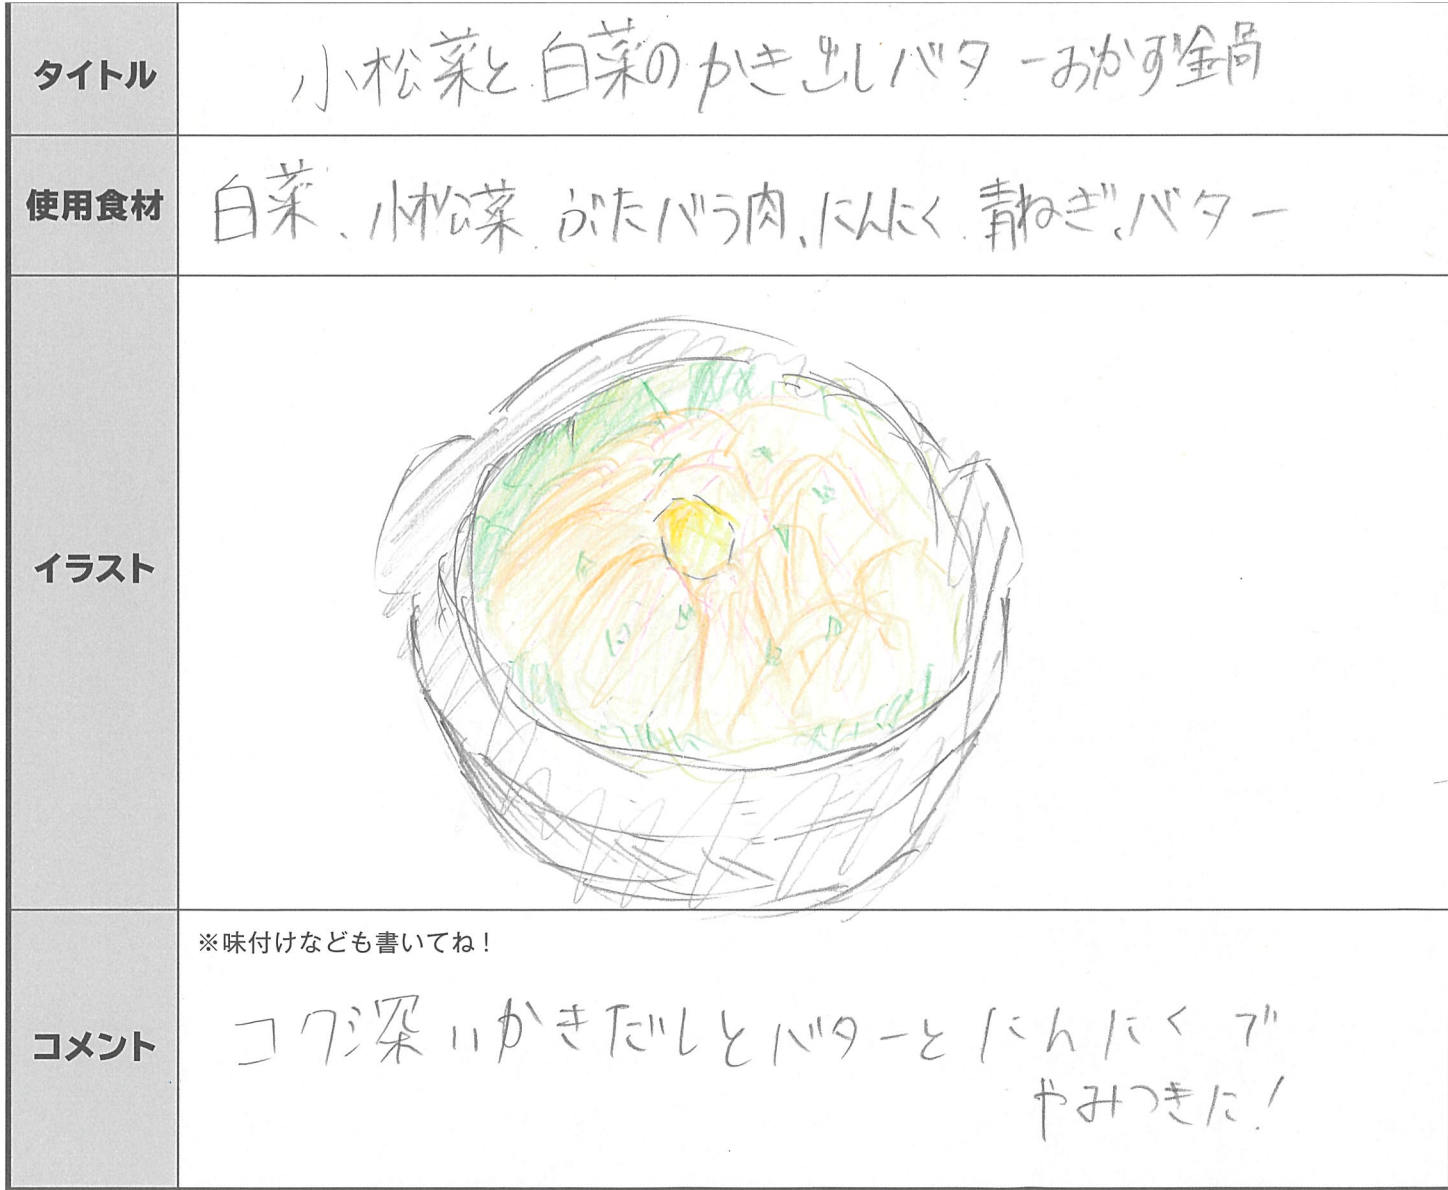 タイトル
小松菜と白菜のかき出しバターおかず鍋
使用食材
白菜、小松菜、ぶたバラ肉、にんにく、青ねぎ、バター
イラスト
コメント
※味付けなども書いてね！
コク深いかきだしとバターとにんにくで
やみつきに！